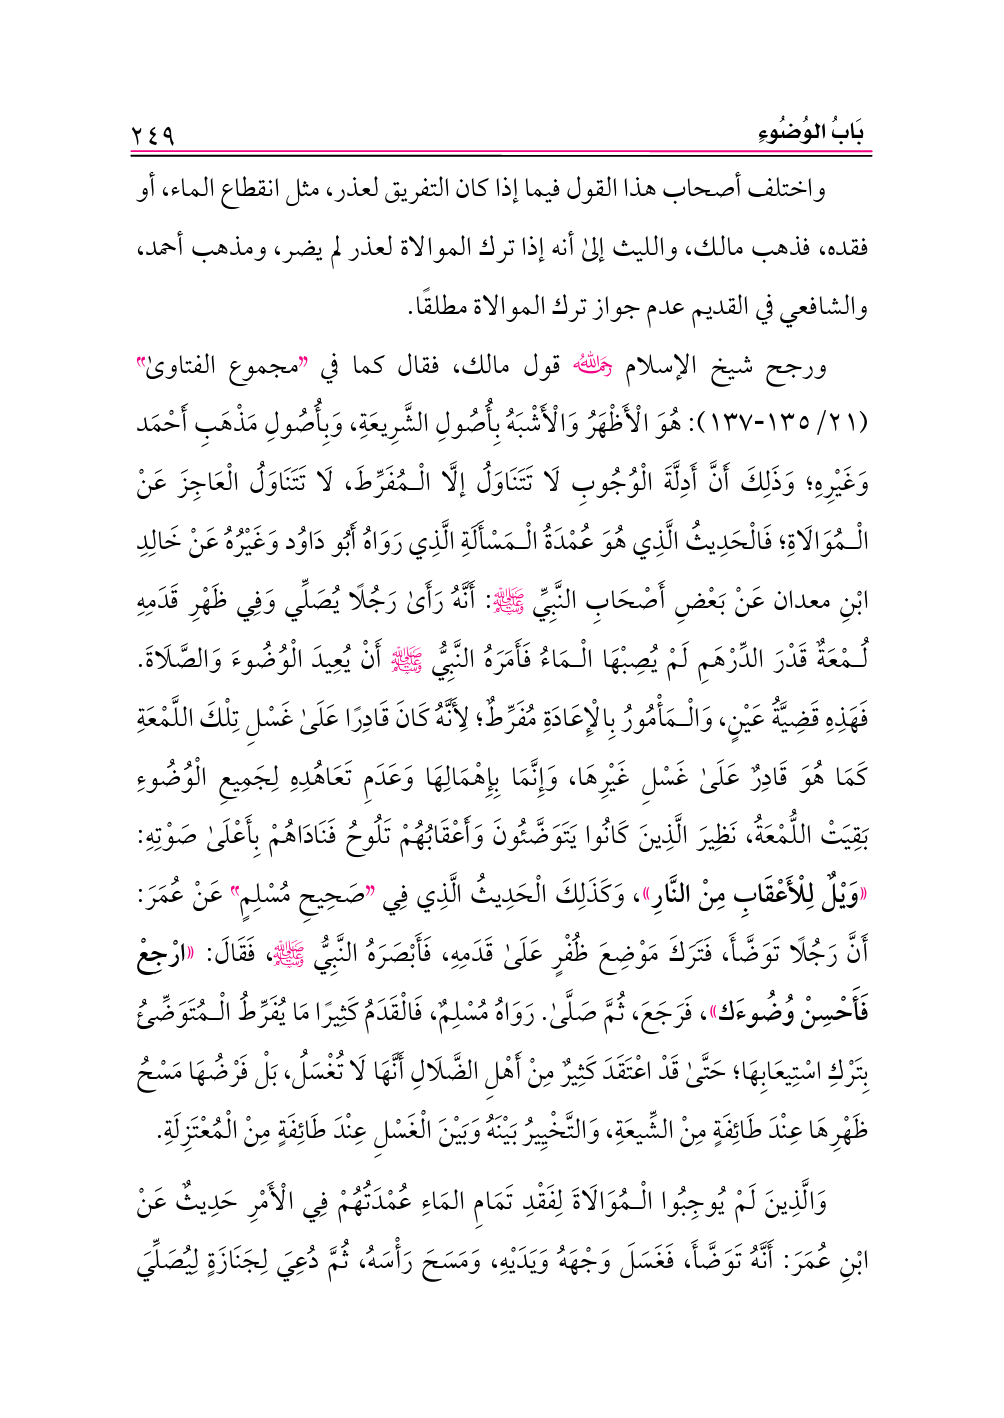 بَابُ الوُضُوءِ ٢٤٩
واختلف أصحاب هذا القول فيما إذا كان التفريق لعذر، مثل انقطاع الماء، أو
فقده، فذهب مالك، والليث إلىٰ أنه إذا ترك الموالاة لعذر لم يضر، ومذهب أحمد،
والشافعي في القديم عدم جواز ترك الموالاة مطلقًا.
ورجح شيخ الإسلام رحمه الله قول مالك، فقال كما في "مجموع الفتاوىٰ"
(٢١/ ١٣٥-١٣٧): هُوَ الْأَظْهَرُ وَالْأَشْبَهُ بِأُصُولِ الشَّرِيعَةِ، وَبِأُصُولِ مَذْهَبِ أَحْمَد
وَغَيْرِهِ؛ وَذَلِكَ أَنَّ أَدِلَّةَ الْوُجُوبِ لَا تَتَنَاوَلُ إلَّا الْـمُفَرِّطَ، لَا تَتَنَاوَلُ الْعَاجِزَ عَنْ
الْـمُوَالَاةِ؛ فَالْحَدِيثُ الَّذِي هُوَ عُمْدَةُ الْـمَسْأَلَةِ الَّذِي رَوَاهُ أَبُو دَاوُد وَغَيْرُهُ عَنْ خَالِدِ
ابْنِ معدان عَنْ بَعْضِ أَصْحَابِ النَّبِيِّ ﷺ: أَنَّهُ رَأَىٰ رَجُلًا يُصَلِّي وَفِي ظَهْرِ قَدَمِهِ
لُـمْعَةٌ قَدْرَ الدِّرْهَمِ لَمْ يُصِبْهَا الْـمَاءُ فَأَمَرَهُ النَّبِيُّ ﷺ أَنْ يُعِيدَ الْوُضُوءَ وَالصَّلَاةَ.
فَهَذِهِ قَضِيَّةُ عَيْنٍ، وَالْـمَأْمُورُ بِالْإِعَادَةِ مُفَرِّطٌ؛ لِأَنَّهُ كَانَ قَادِرًا عَلَىٰ غَسْلِ تِلْكَ اللَّمْعَةِ
كَمَا هُوَ قَادِرٌ عَلَىٰ غَسْلِ غَيْرِهَا، وَإِنَّمَا بِإِهْمَالِهَا وَعَدَمِ تَعَاهُدِهِ لِجَمِيعِ الْوُضُوءِ
بَقِيَتْ اللُّمْعَةُ، نَظِيرَ الَّذِينَ كَانُوا يَتَوَضَّئُونَ وَأَعْقَابُهُمْ تَلُوحُ فَنَادَاهُمْ بِأَعْلَىٰ صَوْتِهِ:
«وَيْلٌ لِلْأَعْقَابِ مِنْ النَّارِ»، وَكَذَلِكَ الْحَدِيثُ الَّذِي فِي "صَحِيحِ مُسْلِمٍ" عَنْ عُمَرَ:
أَنَّ رَجُلًا تَوَضَّأَ، فَتَرَكَ مَوْضِعَ ظُفْرٍ عَلَىٰ قَدَمِهِ، فَأَبْصَرَهُ النَّبِيُّ ﷺ، فَقَالَ: «ارْجِعْ
فَأَحْسِنْ وُضُوءَك»، فَرَجَعَ، ثُمَّ صَلَّىٰ. رَوَاهُ مُسْلِمٌ، فَالْقَدَمُ كَثِيرًا مَا يُفَرِّطُ الْـمُتَوَضِّئُ
بِتَرْكِ اسْتِيعَابِهَا؛ حَتَّىٰ قَدْ اعْتَقَدَ كَثِيرٌ مِنْ أَهْلِ الضَّلَالِ أَنَّهَا لَا تُغْسَلُ، بَلْ فَرْضُهَا مَسْحُ
ظَهْرِهَا عِنْدَ طَائِفَةٍ مِنْ الشِّيعَةِ، وَالتَّخْيِيرُ بَيْنَهُ وَبَيْنَ الْغَسْلِ عِنْدَ طَائِفَةٍ مِنْ الْمُعْتَزِلَةِ.
وَالَّذِينَ لَمْ يُوجِبُوا الْـمُوَالَاةَ لِفَقْدِ تَمَامِ المَاءِ عُمْدَتُهُمْ فِي الْأَمْرِ حَدِيثٌ عَنْ
ابْنِ عُمَرَ: أَنَّهُ تَوَضَّأَ، فَغَسَلَ وَجْهَهُ وَيَدَيْهِ، وَمَسَحَ رَأْسَهُ، ثُمَّ دُعِيَ لِجَنَازَةٍ لِيُصَلِّيَ